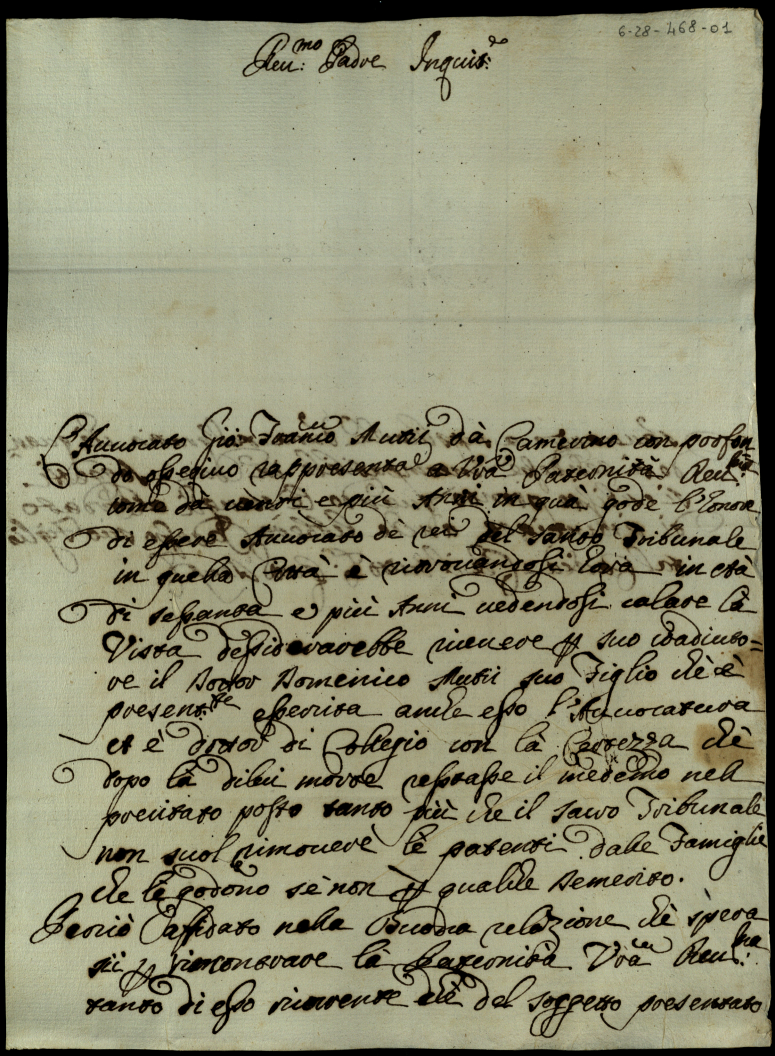 6-28-468-01
Reu:mo Padre Inquis:re
L'Auuocato Gio: Fran.co Mutii dà Camerino con profon
do ossequio rappresenta a Vrã Paternità Reu:ma
come dà uenti e più Anni in quà gode l'honor
di essere Auuocato dè rei del santo Tribunale
in quella Città è ritrouandosi hora in età
di sessanta e più Anni uedendosi calare là
Vista dessiderarebbe riceuere p suo coadiuto=
re il Dottor Domenico Mutii suo Figlio chè è
presentte essercita anche esso l'Auuocatura
et è dottor di Collegio con là Certezza chè
dopo là dilui morte restasse il medemo nell
precitato posto tanto più che il sacro Tribunale
non suol rimouerè lè patenti dalle Famiglie
che lè godono sè non p qualche Demerito.
Perciò Affidato nella Buona relazione chè spera
sii p riscontrare là Paternità Vrã Reu:ma
tanto di esso ricorrente chè del soggetto presentato